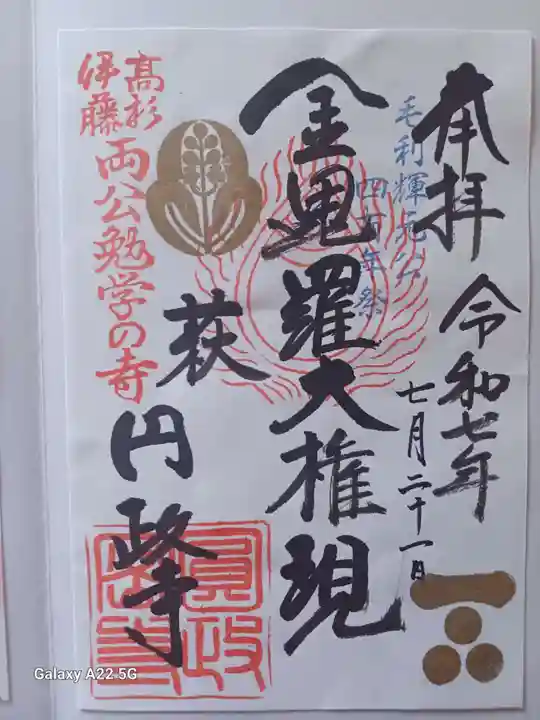 奉拝
令和七年
七月二十一日
毛利輝元公
四百年祭
金毘羅大権現
萩
円政寺
高杉
伊藤
両公勉学の寺
圓政
Galaxy A22 5G